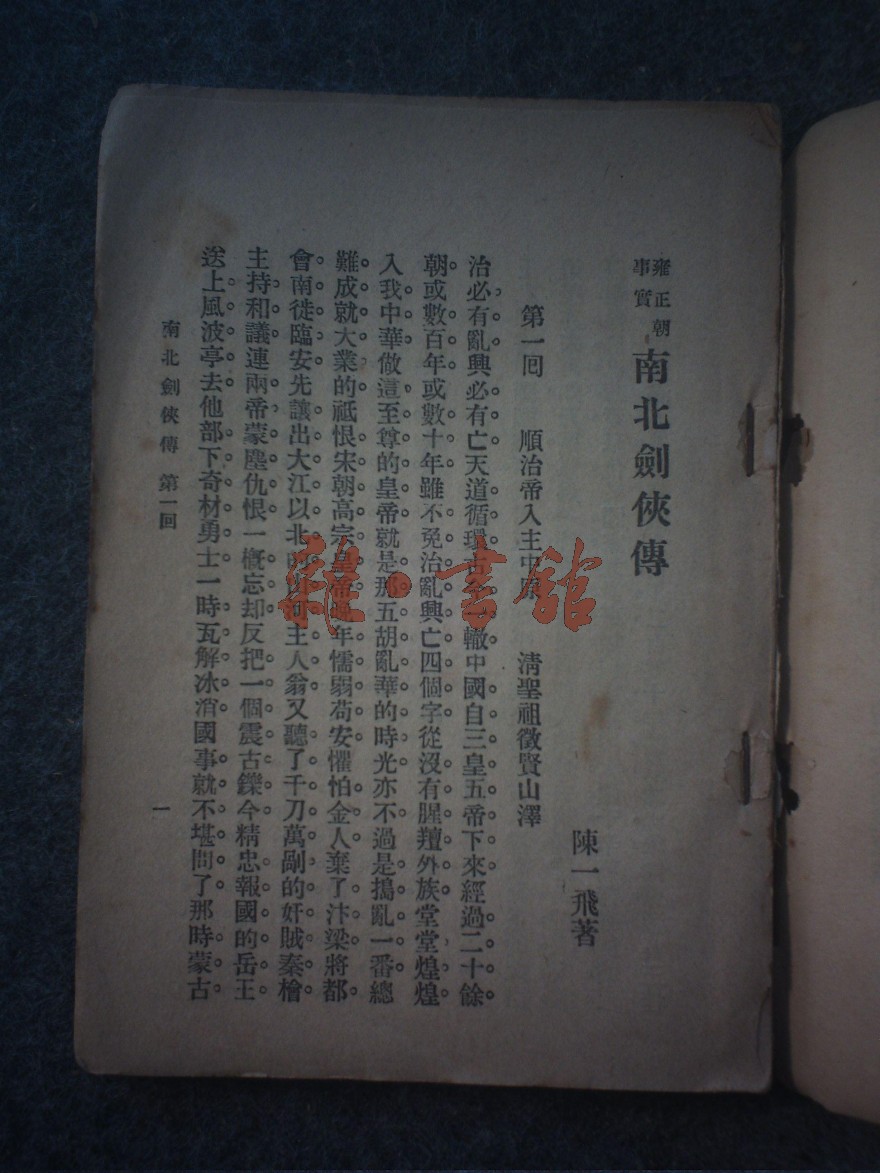 雍正朝
事實
南北劍俠傳
陳一飛著
第一回 順治帝入主中原 清聖祖徵賢山澤
治必有亂興必有亡天道循環古今一轍中國自三皇五帝下來經過二十餘
朝或數百年或數十年雖不免治亂興亡四個字從沒有腥羶外族堂堂煌煌
入我中華做這至尊的皇帝就是那五胡亂華的時光亦不過是搗亂一番總
難成就大業的祗恨宋朝高宗皇帝年懦弱苟安懼怕金人棄了汴梁將都
會南徙臨安先讓出大江以北的山河主人翁又聽了千刀萬剮的奸賊秦檜
主持和議連兩帝蒙塵仇恨一概忘却反把一個震古鑠今精忠報國的岳王
送上風波亭去他部下奇材勇士一時瓦解冰消國事就不堪問了那時蒙古
南北劍俠傳 第一回
一
雜·書館